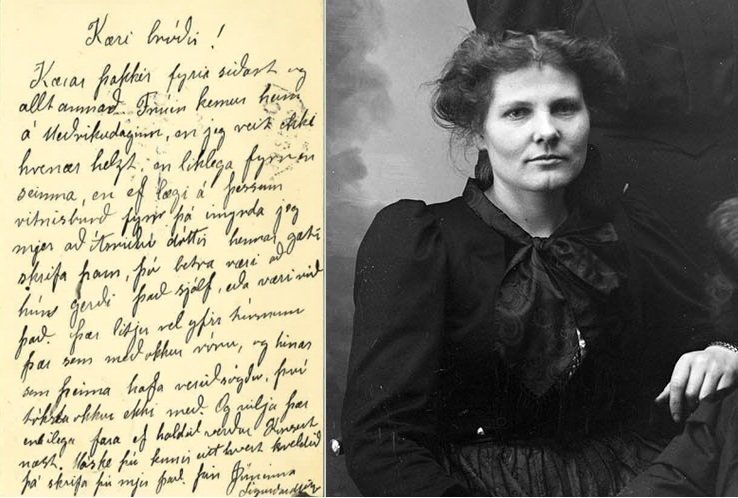 Kæri bróðir!
Kærar þakkir fyrir síðast og
allt annað. Frúin kemur heim
á Miðvikudaginn, en jeg veit ekki
hvenær helzt, en líklega fyr en
seinna, en ef lægi á þessum
vitnisburð fyrir þá ímynda jeg
mjer að dóttir hennar gæti
skrifa þann, þó betra væri að
hún gerði það sjálf, eða væri við
það. Þær litju vel yfir
þær sem með okkur vóru, og hinar
sem heima hafa verið sögðu, því
okkur ekki með. Og vilja þær
endilega fara ef haldið verður Konsert
næst. Máske þú kunnir eitthvert kveldið
þá skrifa þú mjer það. þín Júnínna
Sigurðardóttir